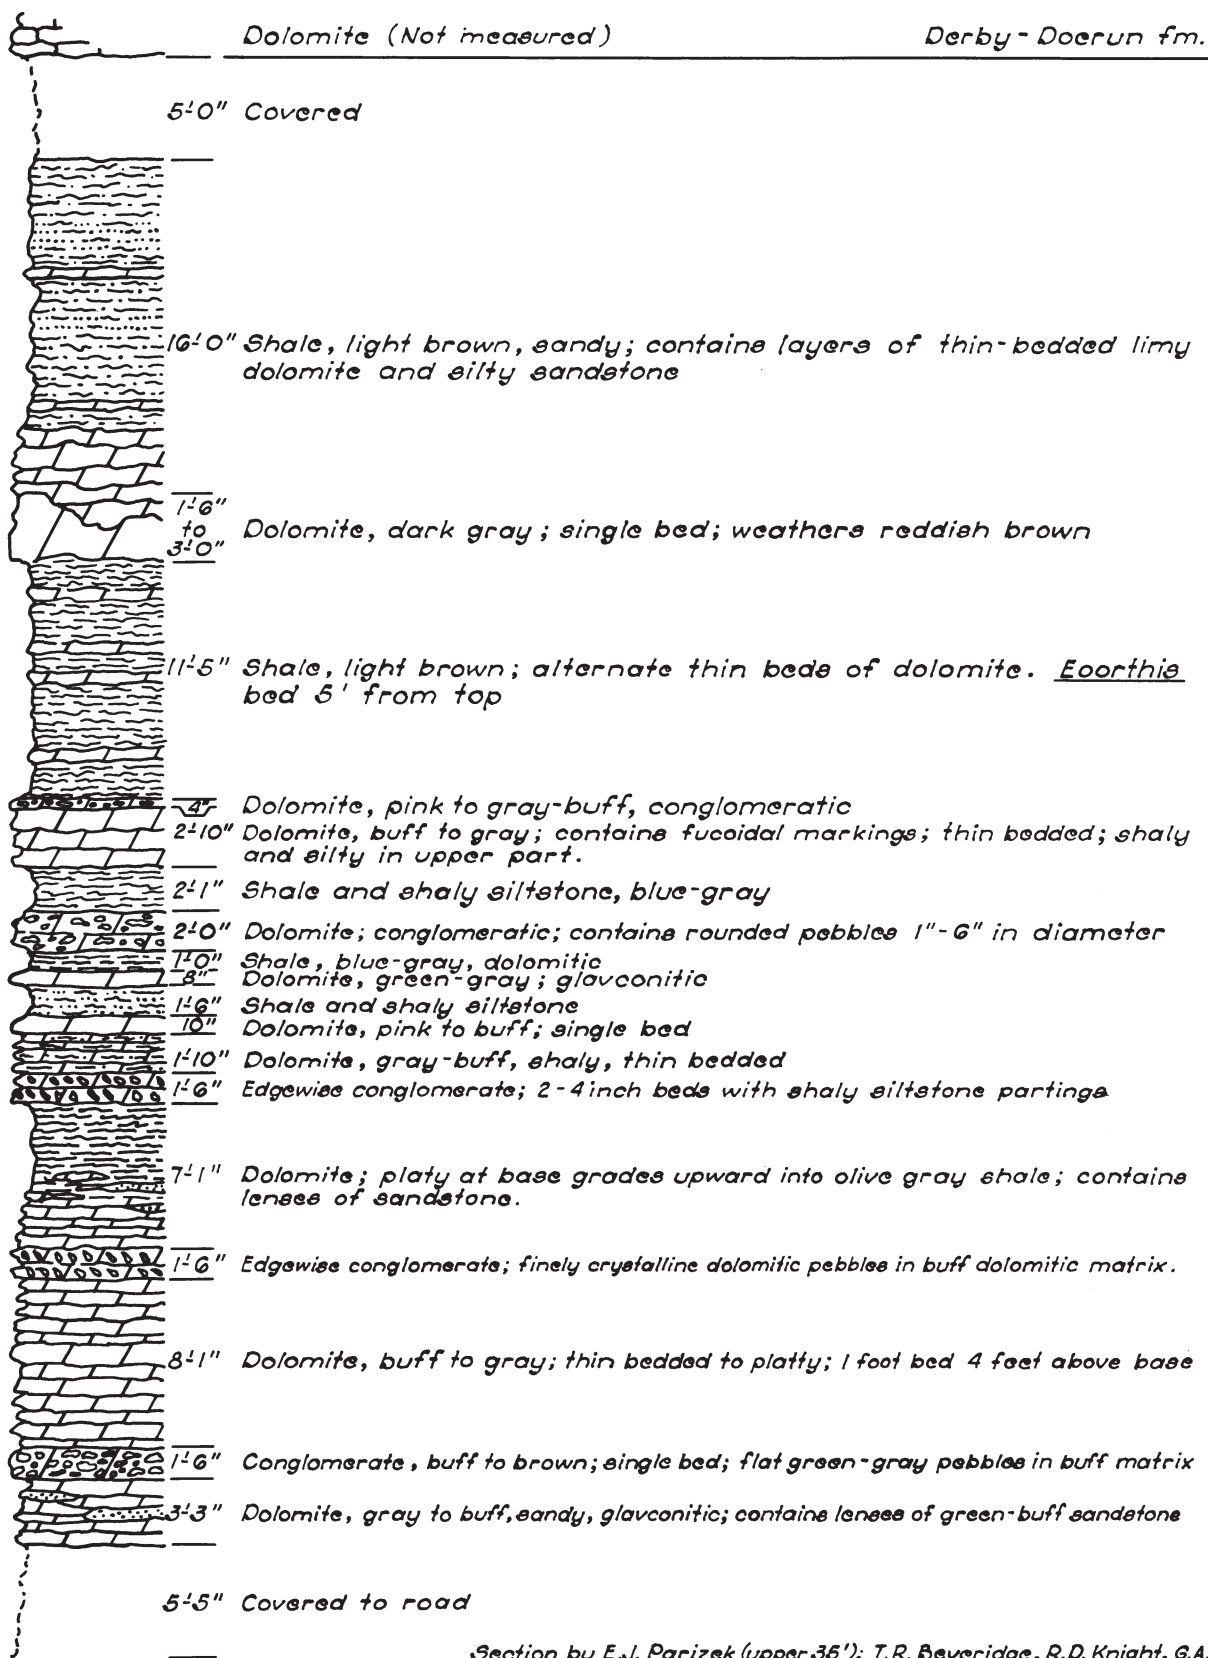 Dolomite (Not measured) Derby-Doerun fm.
5'-0" Covered
16'-0" Shale, light brown, sandy; contains layers of thin-bedded limy
dolomite and silty sandstone
1'-6"
to
3'-0"
Dolomite, dark gray; single bed; weathers reddish brown
11'-5" Shale, light brown; alternate thin beds of dolomite. Eoorthis
bed 5' from top
4" Dolomite, pink to gray-buff, conglomeratic
2'-10" Dolomite, buff to gray; contains fucoidal markings; thin bedded; shaly
and silty in upper part.
2'-1" Shale and shaly siltstone, blue-gray
2'-0" Dolomite; conglomeratic; contains rounded pebbles 1"-6" in diameter
1'-0" Shale, blue-gray, dolomitic
8" Dolomite, green-gray; glavconitic
1'-6" Shale and shaly siltstone
10" Dolomite, pink to buff; single bed
1'-10" Dolomite, gray-buff, shaly, thin bedded
1'-6" Edgewise conglomerate; 2-4 inch beds with shaly siltstone partings
7'-1" Dolomite; platy at base grades upward into olive gray shale; contains
lenses of sandstone.
1'-6" Edgewise conglomerate; finely crystalline dolomitic pebbles in buff dolomitic matrix.
8'-1" Dolomite, buff to gray; thin bedded to platty; 1 foot bed 4 feet above base
1'-6" Conglomerate, buff to brown; single bed; flat green-gray pebbles in buff matrix
3'-3" Dolomite, gray to buff, sandy, glavconitic; contains lenses of green-buff sandstone
5'-5" Covered to road
Section by E.J. Parizek (upper 35'); T.R. Beveridge, R.D. Knight, G.A.